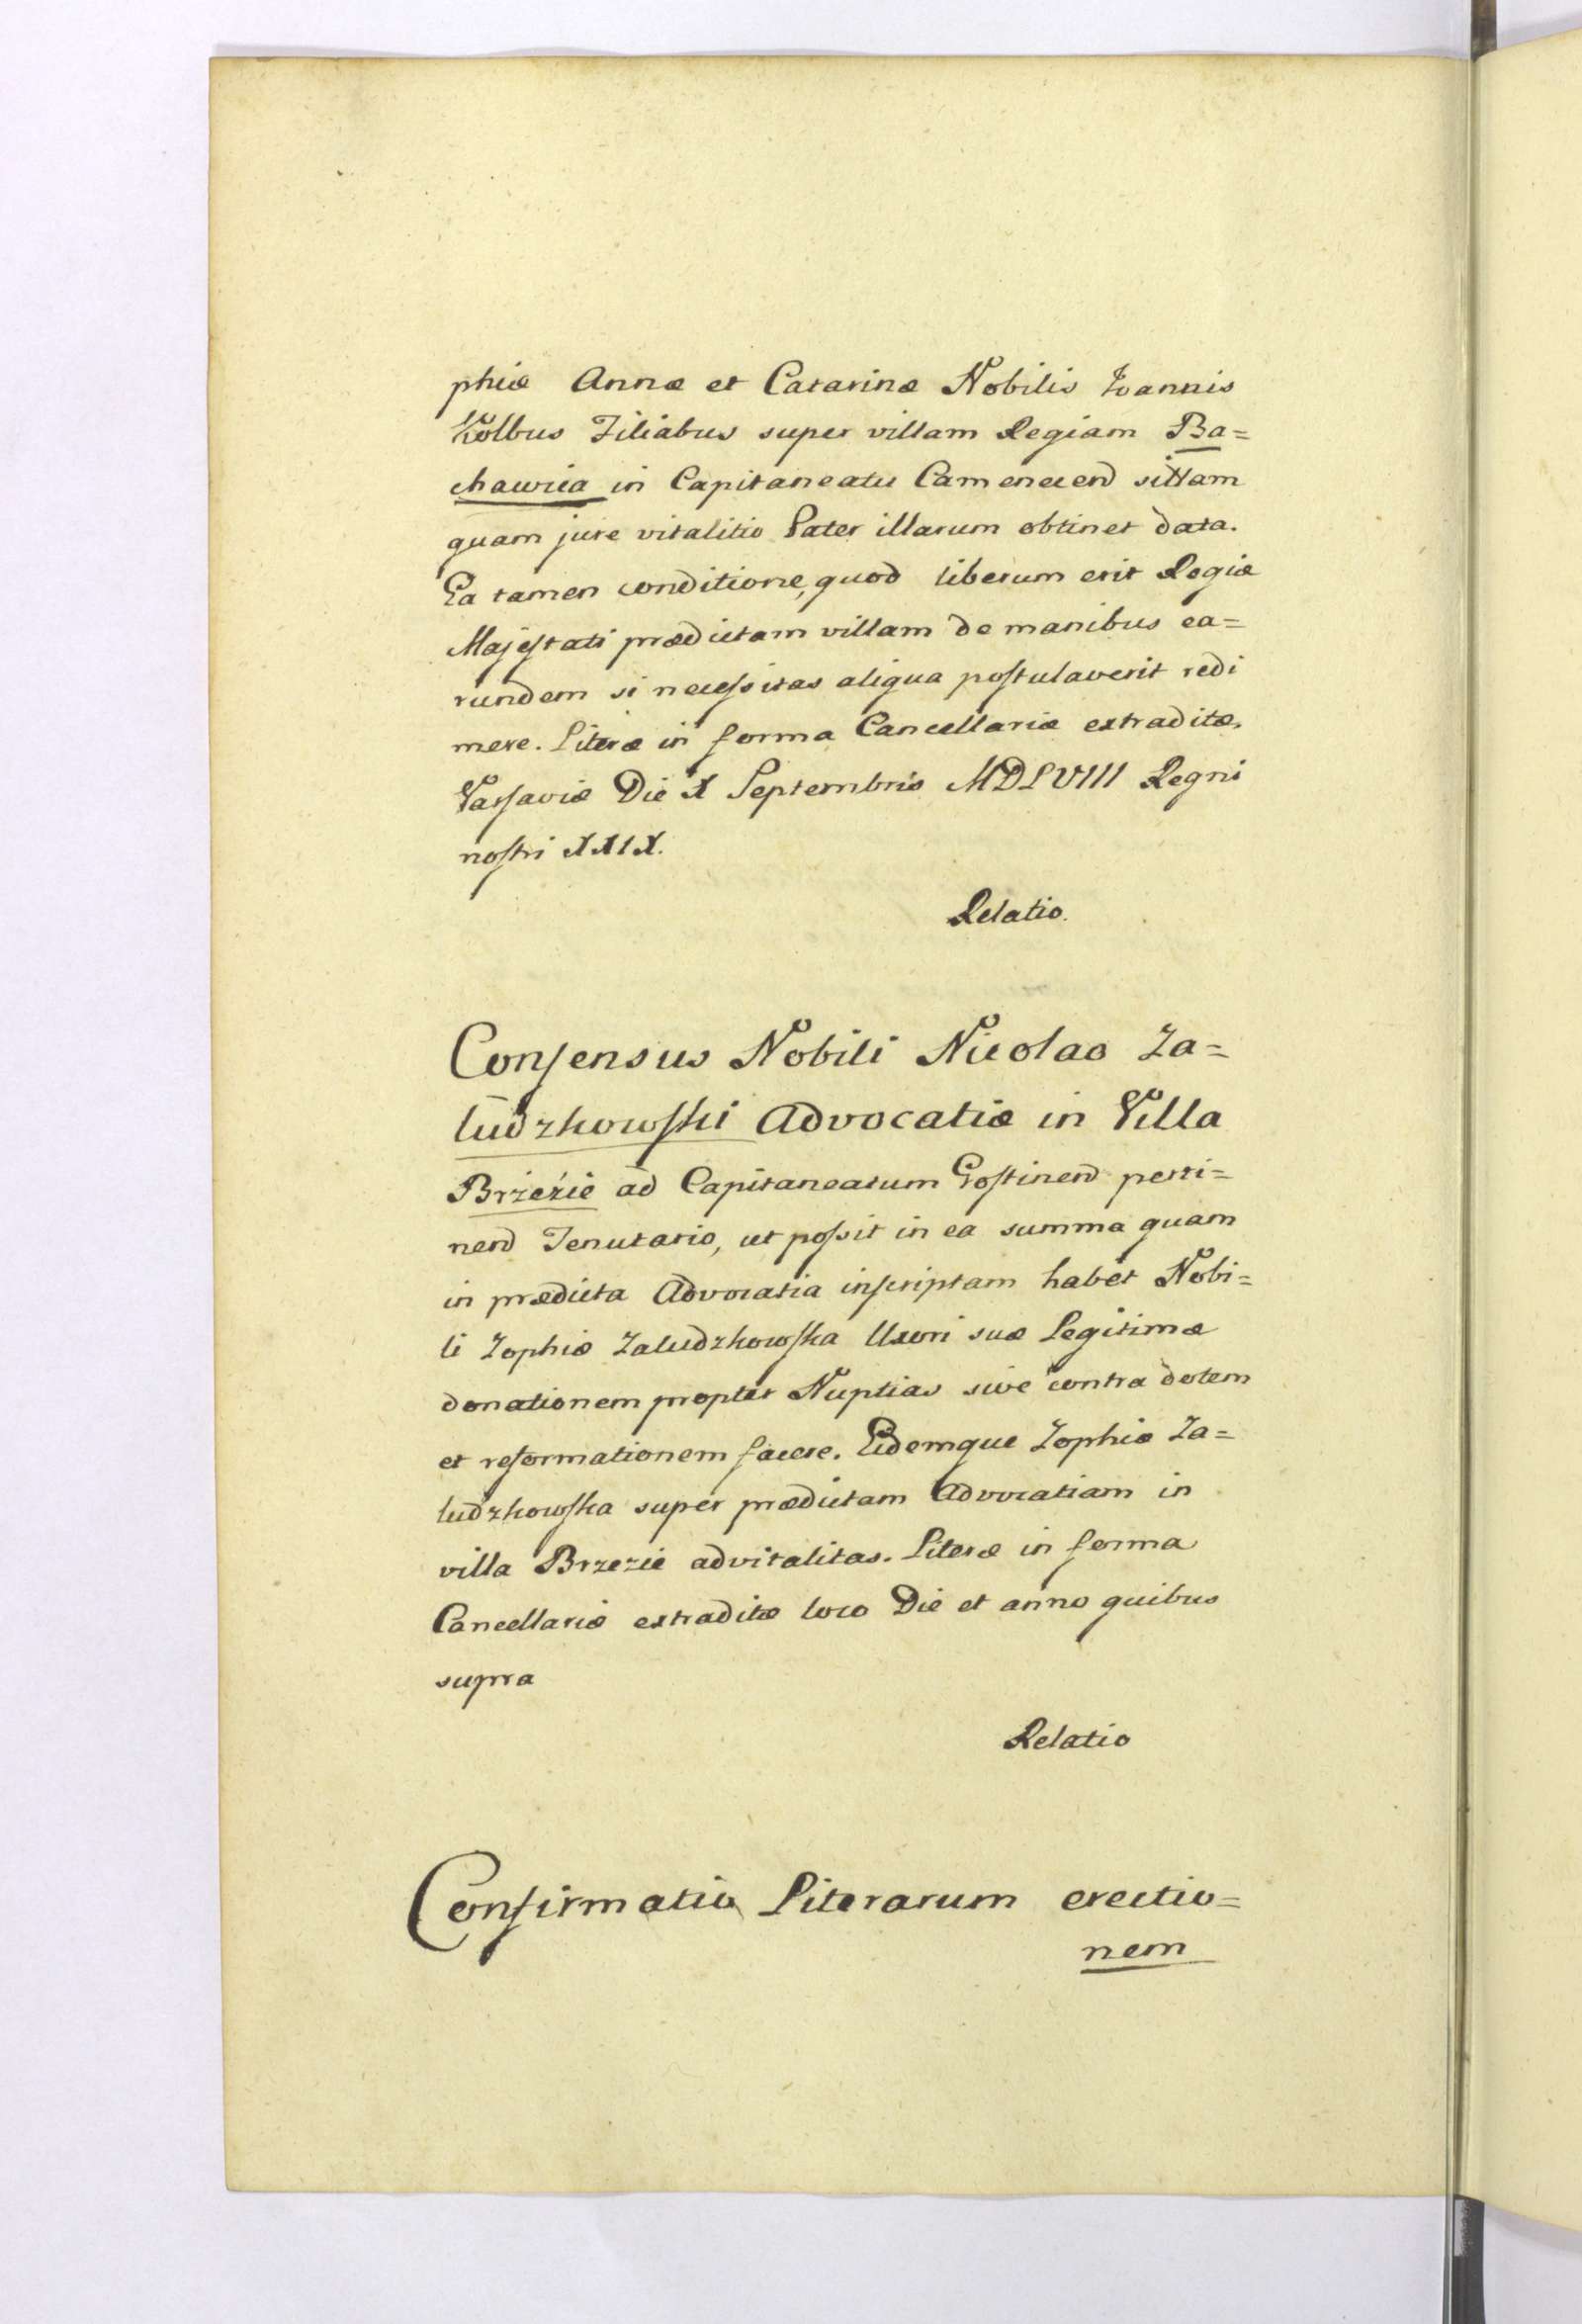 phiæ Annæ et Catarinæ Nobilis Joannis
Kolbus Filiabus super villam Regiam Ba=
chawica in Capitaneatu Camenecen sittam
quam jure vitalitio Pater illarum obtinet data.
Ea tamen conditione, quod liberum erit Regiæ
Majestati prædictam villam de manibus ea=
rundem si necessitas aliqua postulaverit redi
mere. Literæ in forma Cancellariæ extraditæ.
Varsaviæ Die X Septembris MDLVIII Regni
nostri XXIX.
Relatio.
Consensus Nobili Nicolao Za=
ludzkowski Advocatiæ in Villa
Brzezie ad Capitaneatum Gostinen perti=
nen Tenutario, ut possit in ea summa quam
in prædicta Advocatia inscriptam habet Nobi=
li Zophiæ Zaludzkowska Uxori suæ Legitimæ
donationem propter Nuptias sive contra dotem
et reformationem facere. Eidemque Zophiæ Za=
ludzkowska super prædictam Advocatiam in
villa Brzezie advitalitas. Literæ in forma
Cancellariæ extraditæ loco Die et anno quibus
supra
Relatio
Confirmatio Literarum erectio=
nem